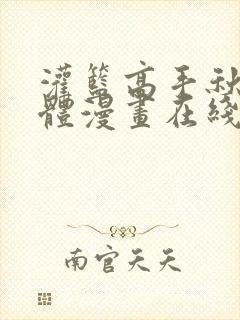 灌籃高手秋
體漫畫在綫
南官天天